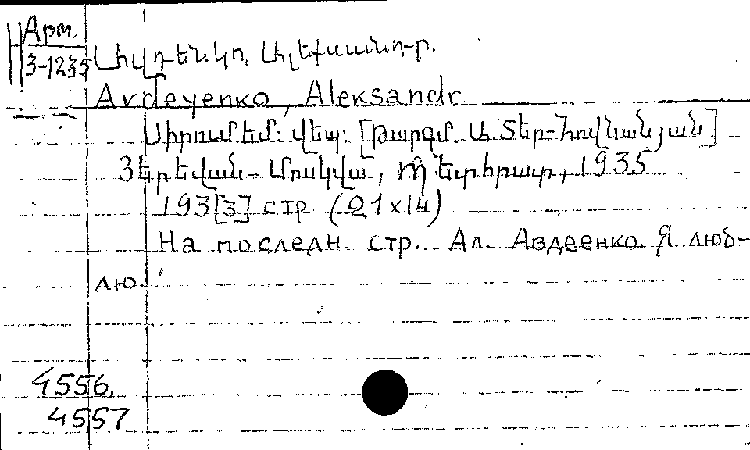 Арт.
3-1235
Ավդեենկո, Ալեքսանդր.
Avdeyenko, Aleksandr
Սիրում եմ: Վեպ: [Թարգմ. Ա. Տեր-Հովնանյան]
Յերեվան - Մոսկվա, 1935
193[3] стр (21x14)
На последн. стр. Ал. Авдеенко Я люб-
лю.
4556,
4557